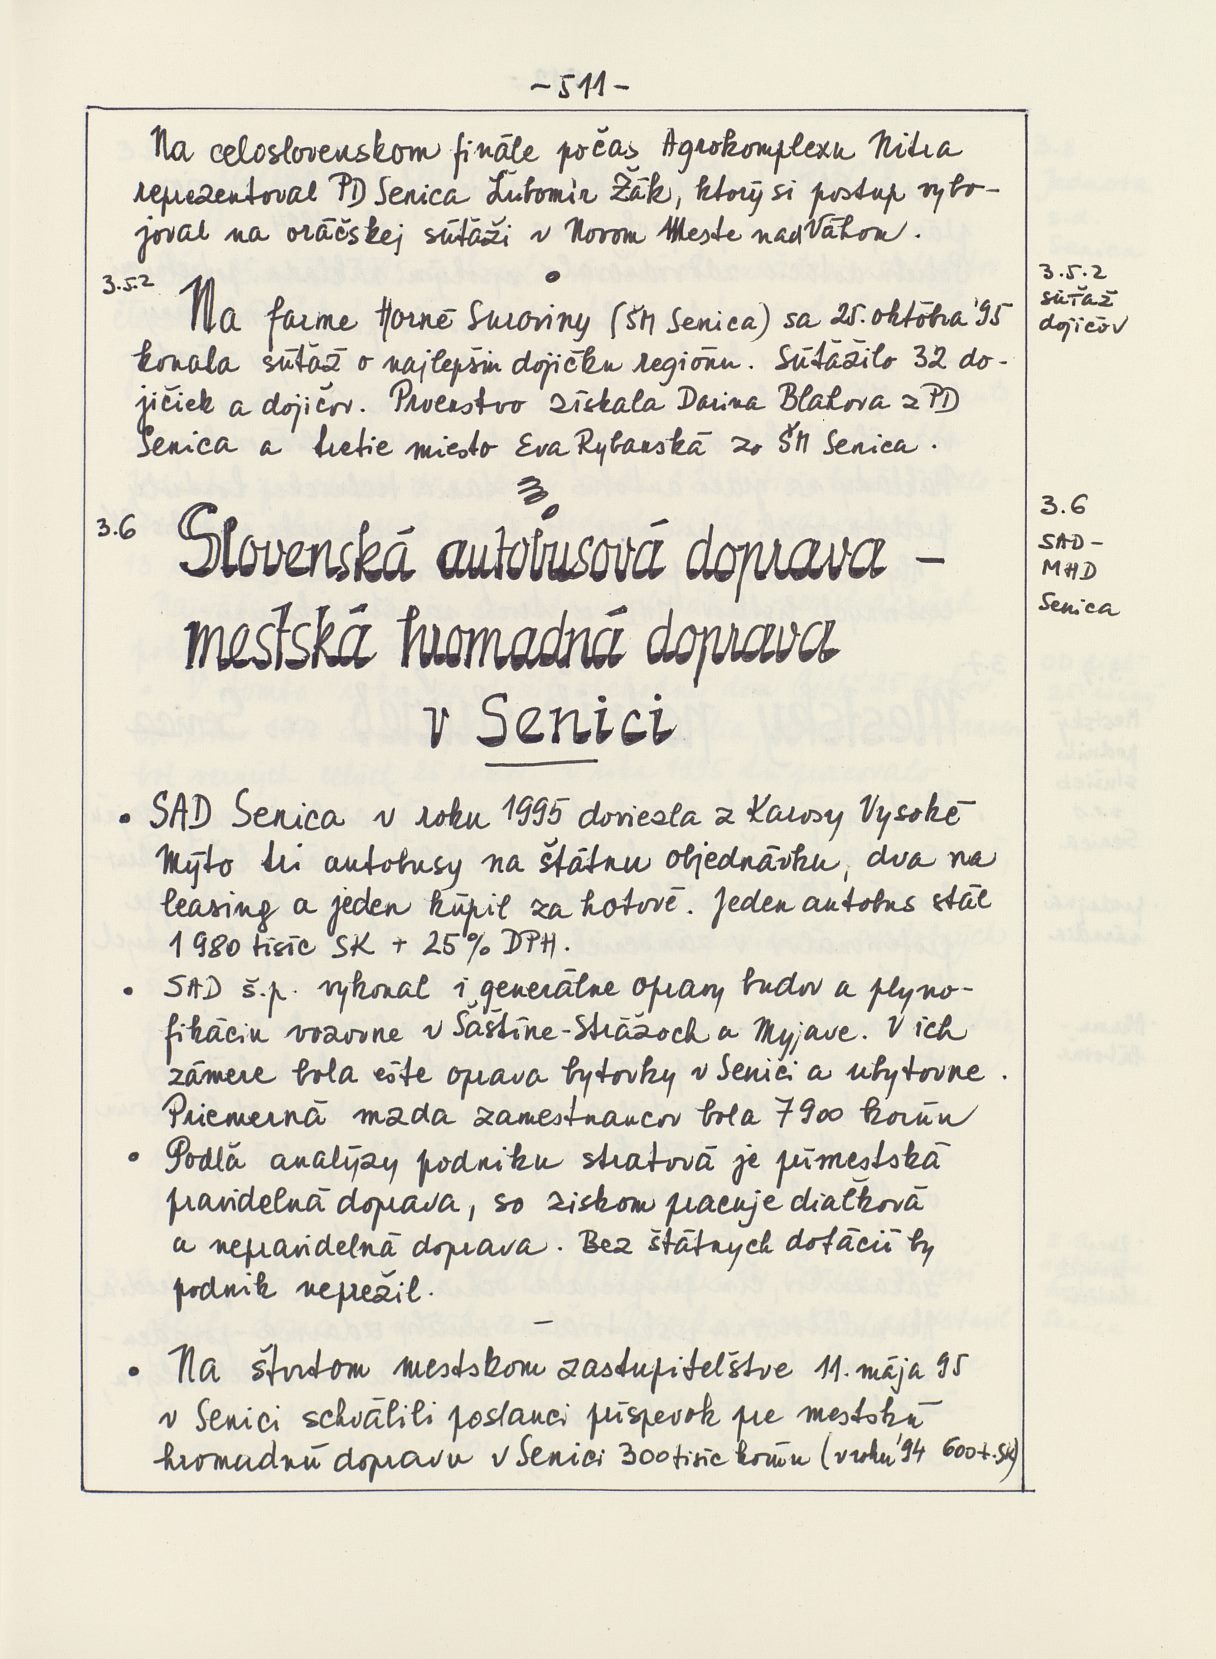 -511-
Na celoslovenskom finále počas Agrokomplexu Nitra
reprezentoval PD Senica Ľubomír Žák, ktorý si postup vybo-
joval na oráčskej súťaži v Novom Meste nad Váhom.
3.5.2
Na farme Horné Suroviny (ŠM Senica) sa 25. októbra '95
konala súťaž o najlepšiu dojičku regiónu. Súťažilo 32 do-
jičiek a dojičov. Prvenstvo získala Darina Blahova z PD
Senica a tretie miesto Eva Rybanská zo ŠM Senica.
3.5.2
súťaž
dojičov
3.6
Slovenská autobusová doprava -
mestská hromadná doprava
v Senici
3.6
SAD-
MHD
Senica
• SAD Senica v roku 1995 doviezla z Karosy Vysoké
Mýto tri autobusy na štátnu objednávku, dva na
leasing a jeden kúpil za hotové. Jeden autobus stál
1 980 tisíc SK + 25% DPH.
• SAD š.p. vykonal i generálne opravy budov a plyno-
fikáciu vozovne v Šaštíne-Strážoch a Myjave. V ich
zámere bola ešte oprava bytovky v Senici a ubytovne.
Priemerná mzda zamestnancov bola 7900 korún
• Podľa analýzy podniku stratová je prímestská
pravidelná doprava, so ziskom pracuje diaľková
a nepravidelná doprava. Bez štátnych dotácií by
podnik neprežil.
–
• Na štvrtom mestskom zastupiteľstve 11. mája 95
v Senici schválili poslanci príspevok pre mestskú
hromadnú dopravu v Senici 300 tisíc korún (v roku '94 600 t. SK)